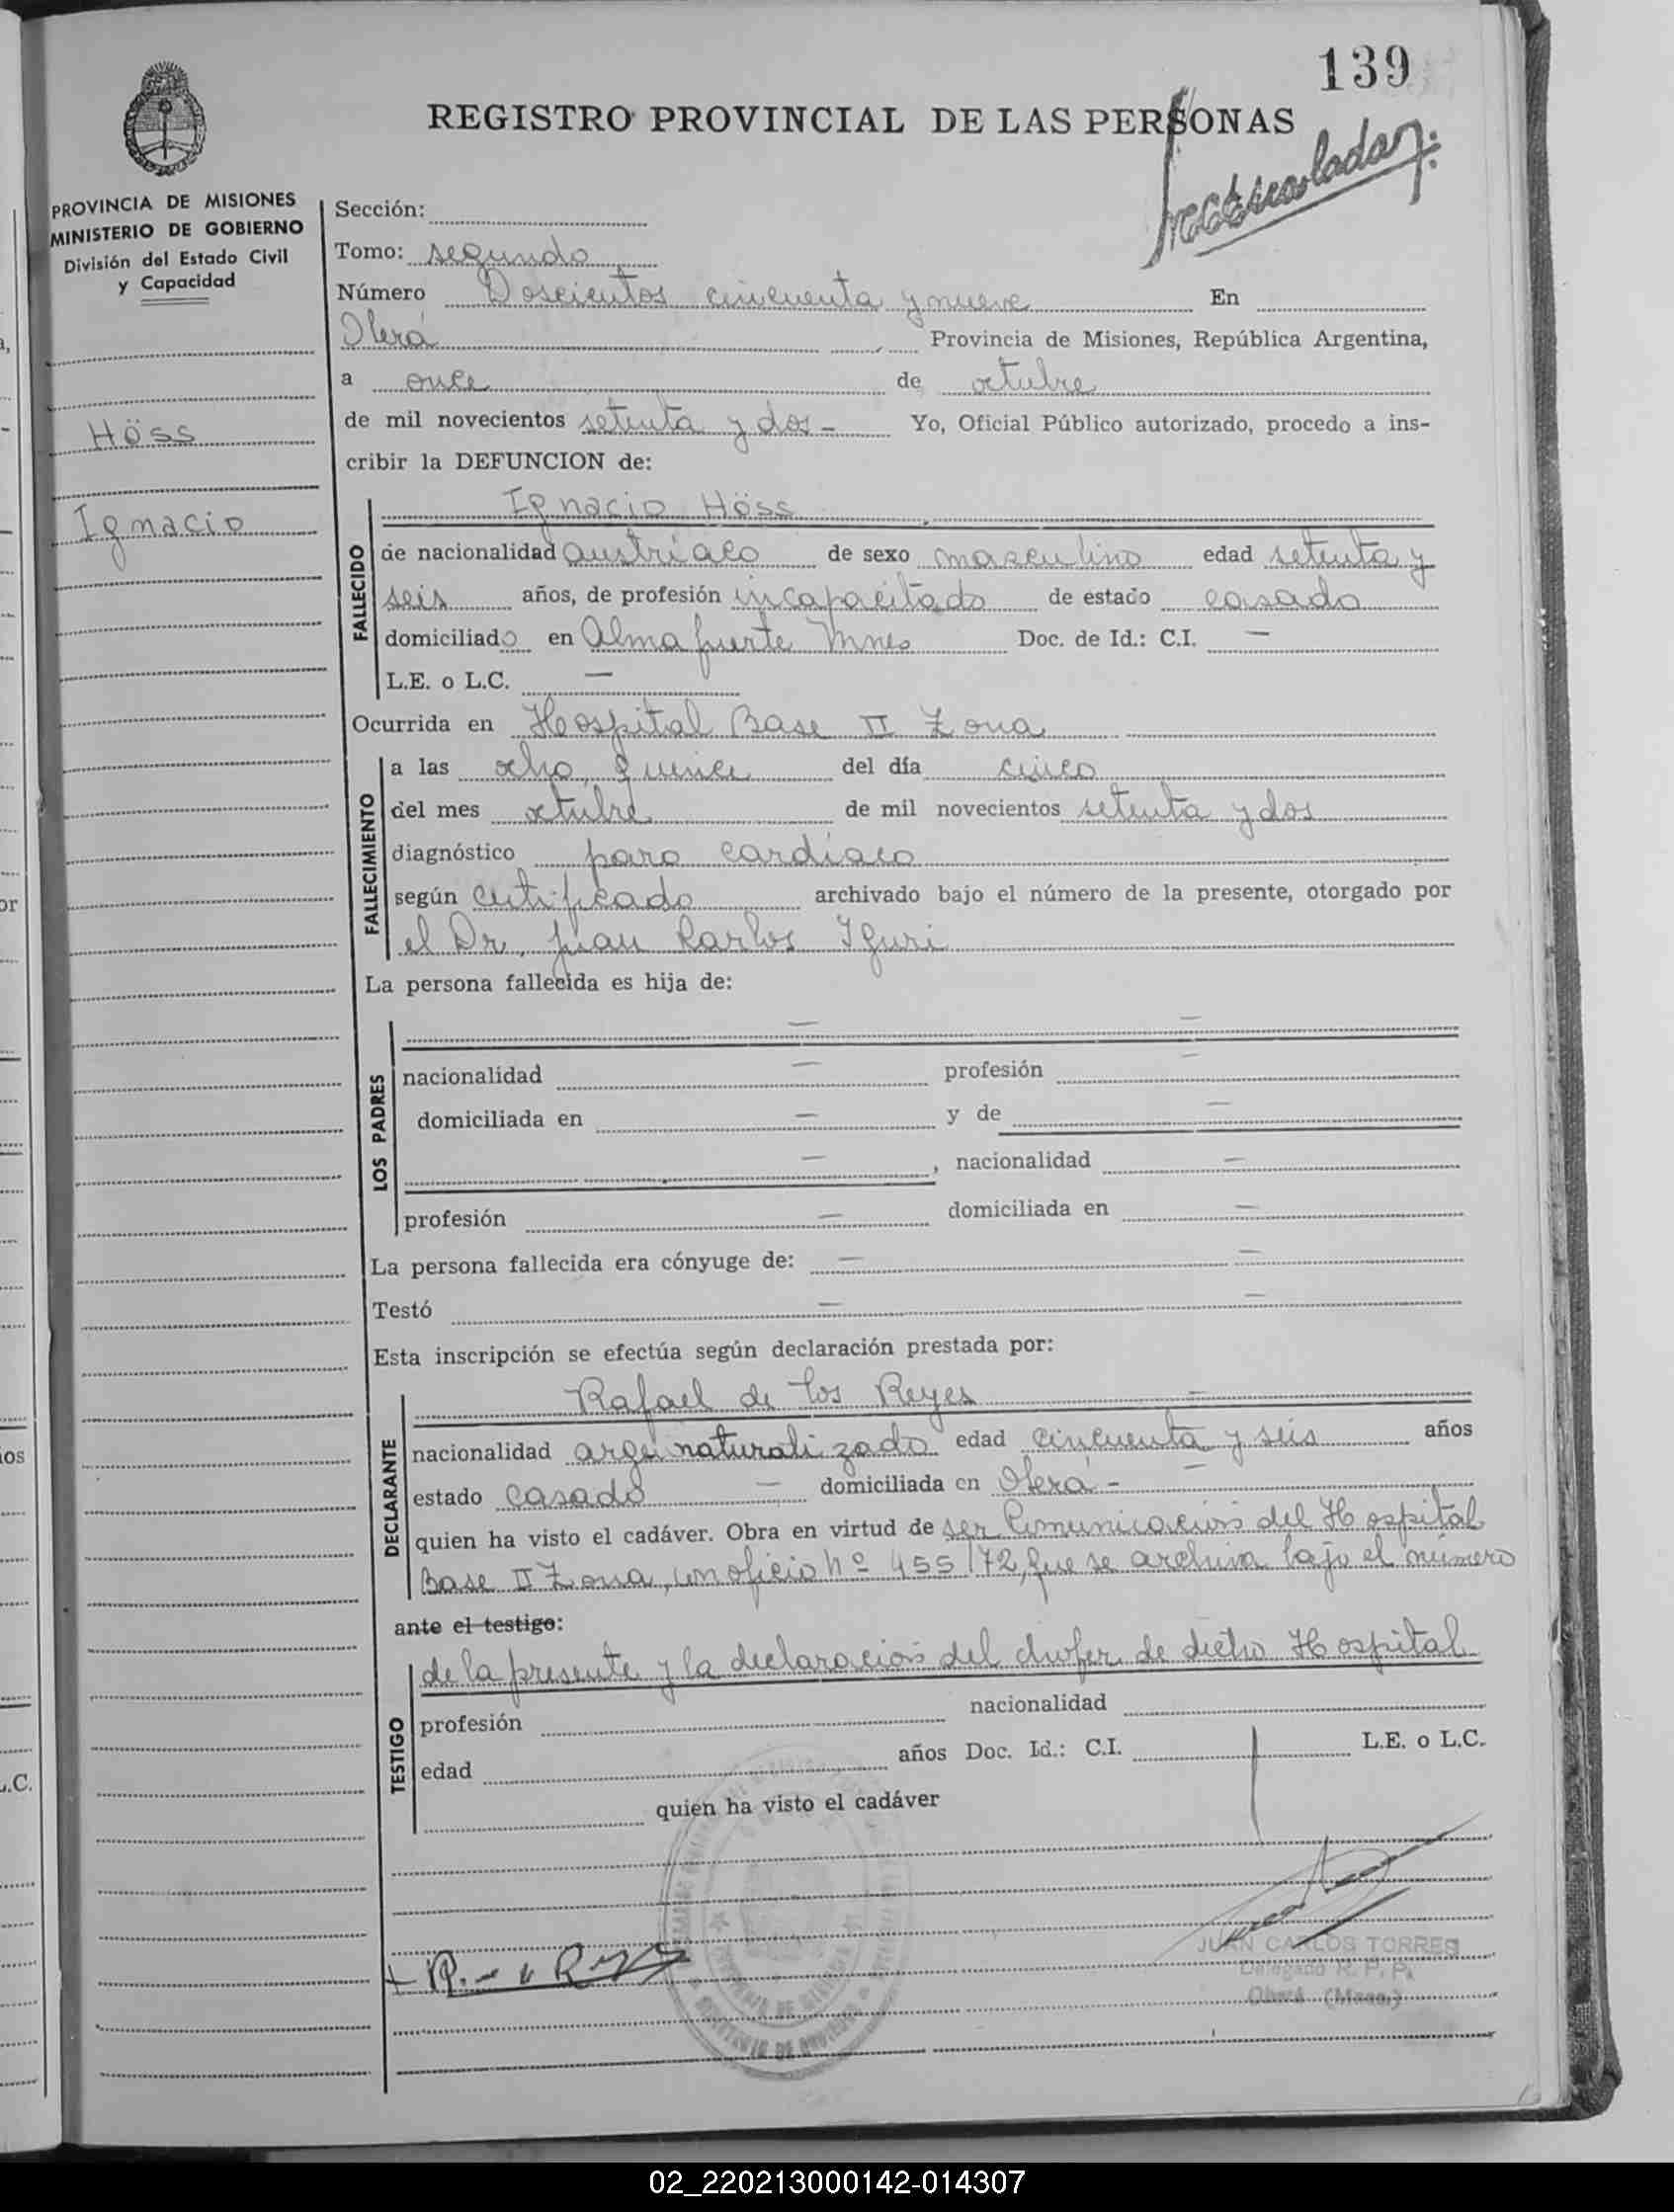 139
REGISTRO PROVINCIAL DE LAS PERSONAS
PROVINCIA DE MISIONES
MINISTERIO DE GOBIERNO
División del Estado Civil
y Capacidad
Höss
Ignacio
Sección:
Tomo: segundo
Número Doscientos cincuenta y nueve En
Oberá Provincia de Misiones, República Argentina,
a once de octubre
de mil novecientos setenta y dos - Yo, Oficial Público autorizado, procedo a ins-
cribir la DEFUNCION de:
FALLECIDO
Ignacio Höss
de nacionalidad austríaco de sexo masculino edad setenta y
seis años, de profesión incapacitado de estado casado
domiciliado en Almafuerte Mnes Doc. de Id.: C.I. —
L.E. o L.C. —
Ocurrida en Hospital Base II Zona
FALLECIMIENTO
a las ocho quince del día cinco
del mes octubre de mil novecientos setenta y dos
diagnóstico paro cardíaco
según certificado archivado bajo el número de la presente, otorgado por
el Dr. Juan Carlos Iguri
La persona fallecida es hija de:
LOS PADRES
— —
nacionalidad — profesión —
domiciliada en — y de —
— , nacionalidad —
profesión — domiciliada en —
La persona fallecida era cónyuge de: — —
Testó — —
Esta inscripción se efectúa según declaración prestada por:
DECLARANTE
Rafael de los Reyes —
nacionalidad arge naturalizado edad cincuenta y seis años
estado casado — domiciliada en Oberá - —
quien ha visto el cadáver. Obra en virtud de ser Comunicación del Hospital
Base II Zona, con oficio Nº 455/72, que se archiva bajo el número
ante el testigo:
TESTIGO
de la presente y la declaración del chofer de dicho Hospital
profesión nacionalidad
edad años Doc. Id.: C.I. L.E. o L.C.
quien ha visto el cadáver
JUAN CARLOS TORRES
Delegado R. P. P.
Oberá (Mnes.)
02_220213000142-014307